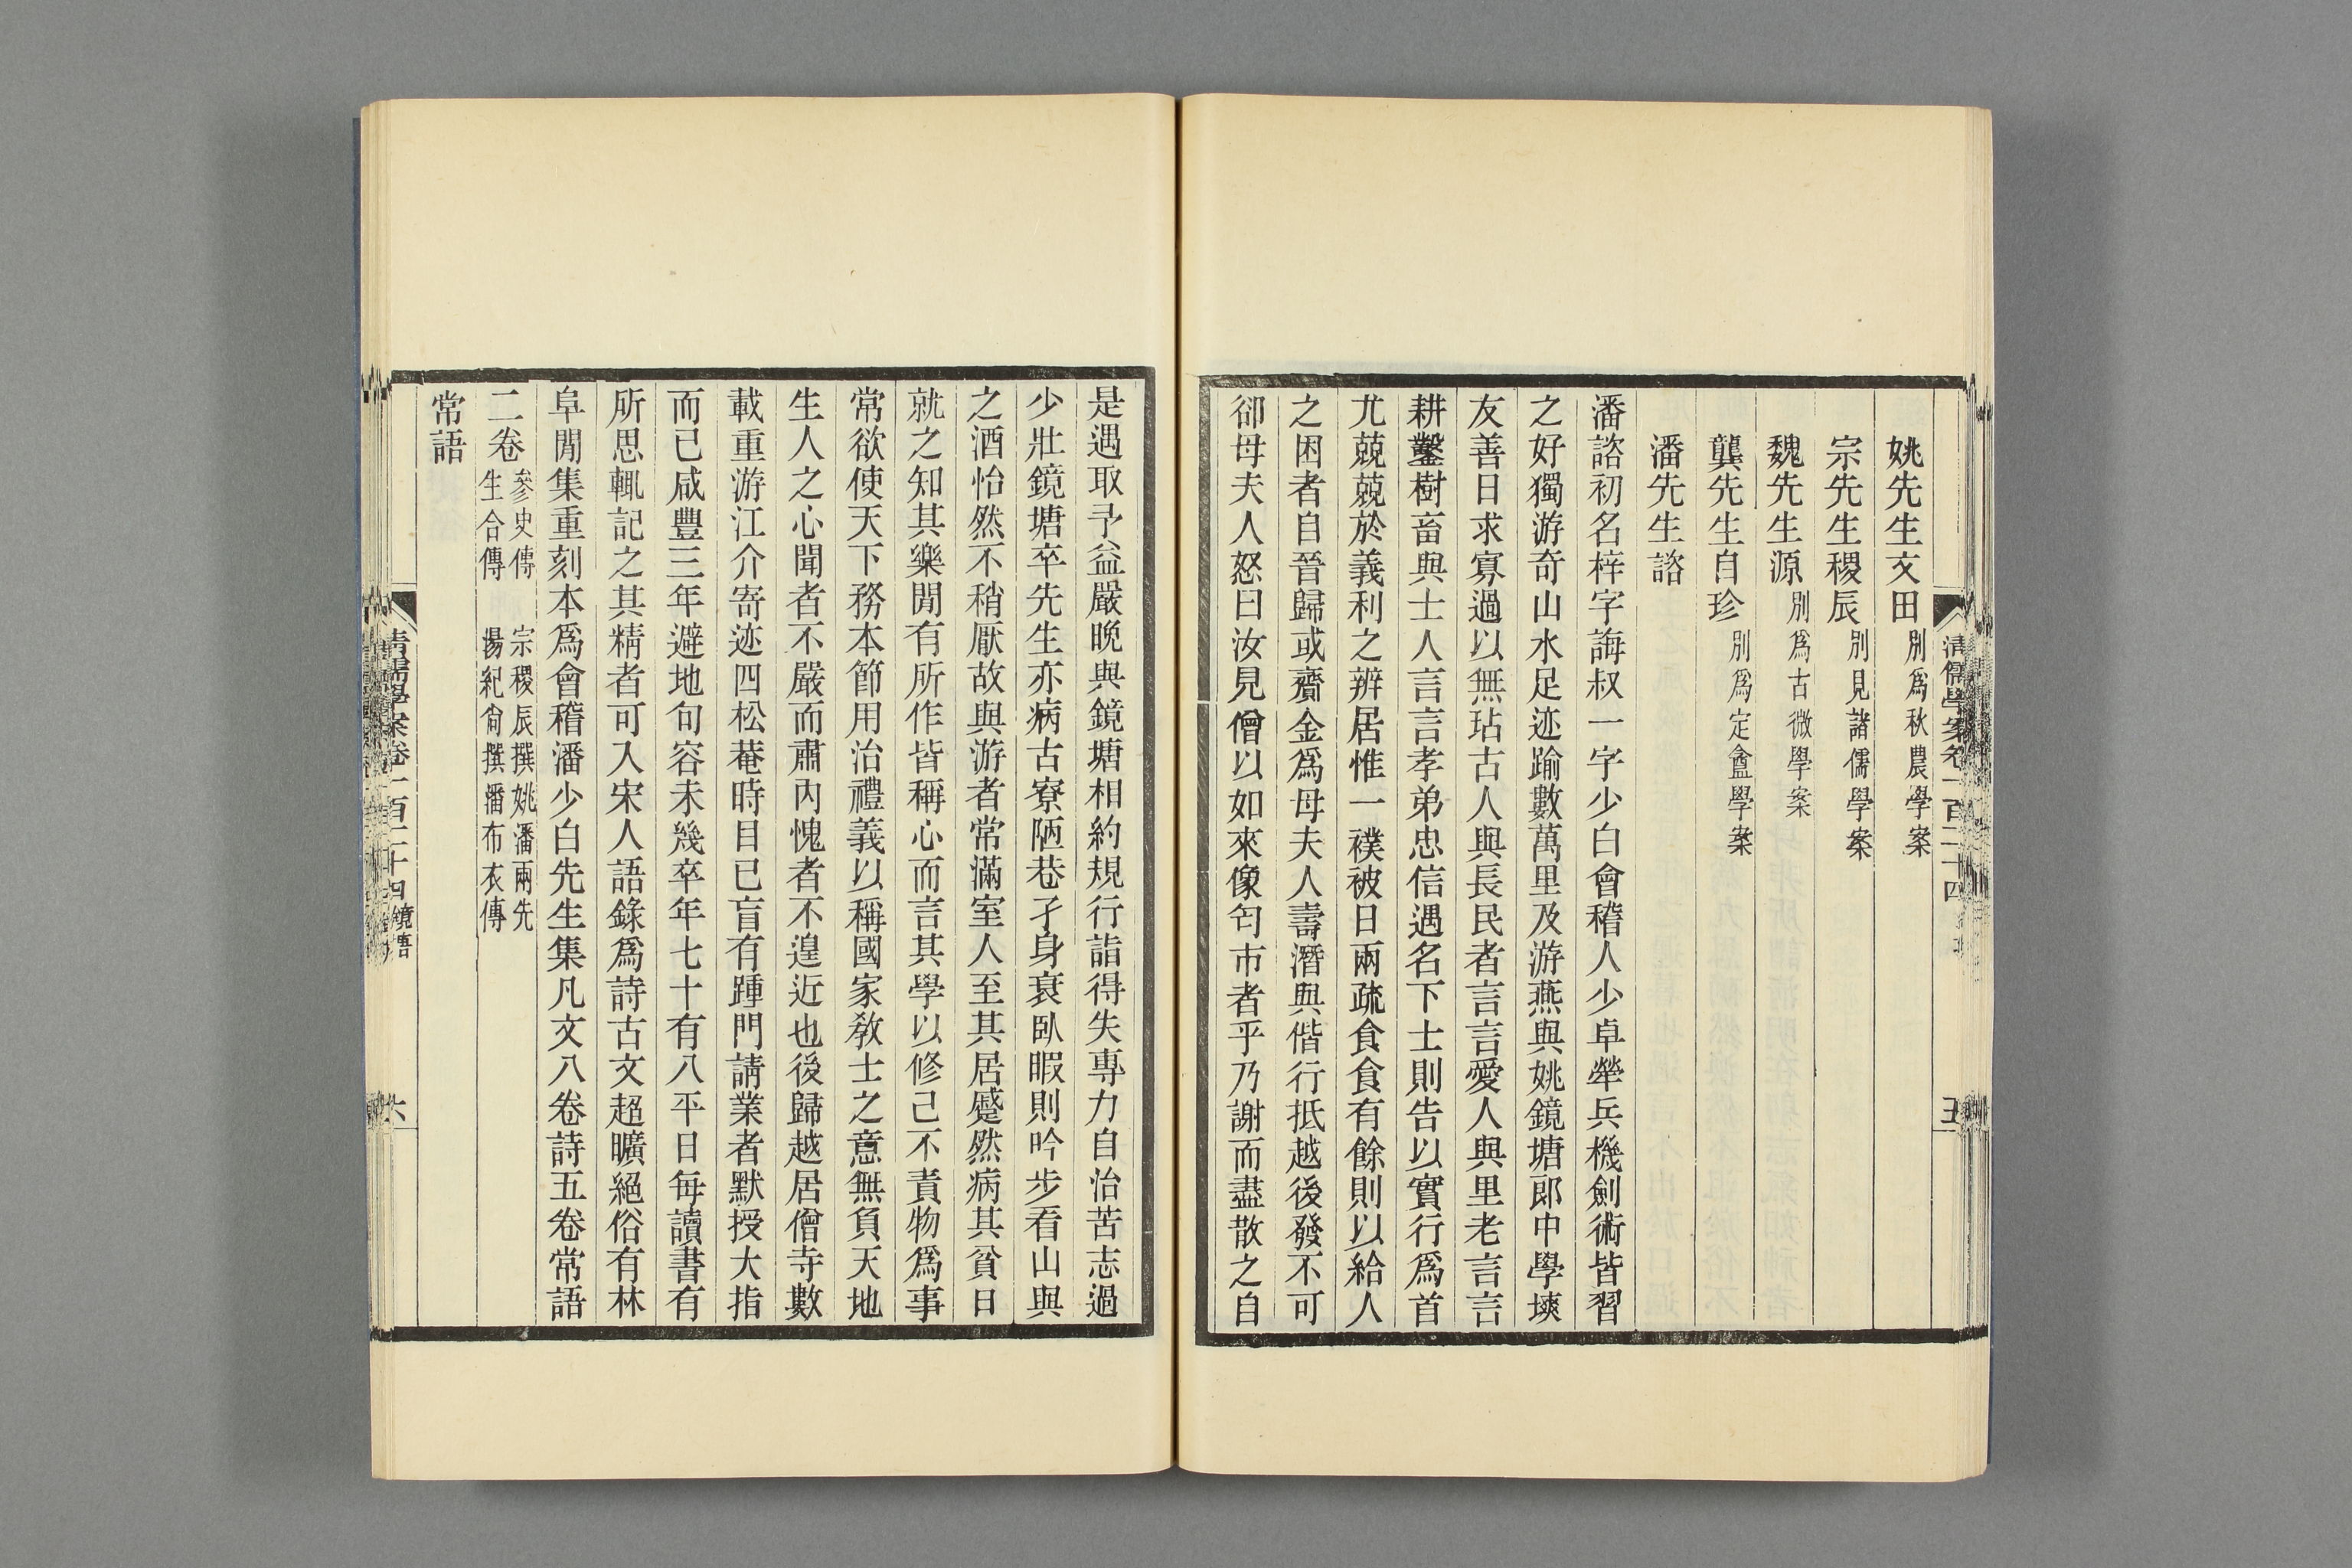 姚先生文田別爲秋農學案
宗先生稷辰別見諸儒學案
魏先生源別爲古微學案
龔先生自珍別爲定盦學案
潘先生諮
潘諮初名梓字誨叔一字少白會稽人少卓犖兵機劍術皆習
之好獨游奇山水足迹踰數萬里及游燕與姚鏡塘郎中學塽
友善日求寡過以無玷古人與長民者言言愛人與里老言言
耕鑿樹畜與士人言言孝弟忠信遇名下士則告以實行爲首
尤兢兢於義利之辨居惟一襆被日兩疏食食有餘則以給人
之困者自晉歸或齎金爲母夫人壽潛與偕行抵越後發不可
卻母夫人怒曰汝見僧以如來像匄市者乎乃謝而盡散之自
清儒學案卷一百二十四
五
是遇取予益嚴晚與鏡塘相約規行詣得失專力自治苦志過
少壯鏡塘卒先生亦病古寮陋巷孑身衰臥暇則吟步看山與
之酒怡然不稍厭故與游者常滿室人至其居蹙然病其貧日
就之知其樂閒有所作皆稱心而言其學以修己不責物爲事
常欲使天下務本節用治禮義以稱國家敎士之意無負天地
生人之心聞者不嚴而肅內愧者不遑近也後歸越居僧寺數
載重游江介寄迹四松菴時目已盲有踵門請業者默授大指
而已咸豐三年避地句容未幾卒年七十有八平日每讀書有
所思輒記之其精者可入宋人語錄爲詩古文超曠絕俗有林
阜閒集重刻本爲會稽潘少白先生集凡文八卷詩五卷常語
二卷參史傳　宗稷辰撰姚潘兩先
生合傳　楊紀尙撰潘布衣傳
常語
清儒學案卷一百二十四 鏡塘
六